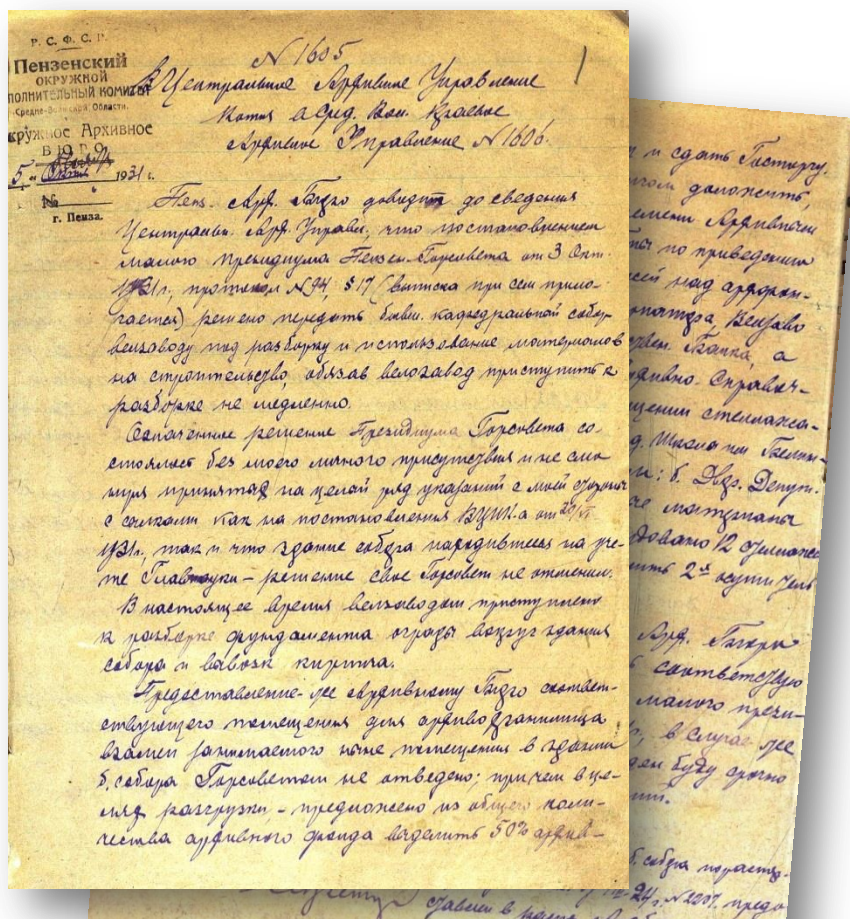 Р. С. Ф. С. Р.
Пензенский
ОКРУЖНОЙ
ПОЛНИТЕЛЬНЫЙ КОМИТЕТ
Средне-Волжской Области.
кружное Архивное
БЮРО
5 " Октябрь 1931 г.
№
г. Пенза.
N 1605
В Центральное Архивное Управление
Копия в Сред. Вол. Краевое
Архивное Управление N 1606.
Пенз. Арх. Бюро доводит до сведения
Центральн. Арх. Управл., что постановлением
малого президиума Пензен. Горсовета от 3 Окт.
1931 г., протокол N 94, § 17 (выписка при сем прила-
гается) решено передать бывш. кафедральный собор
велозаводу под разборку и использование материалов
на строительство, обязав велозавод приступить к
разборке не медленно.
Означенное решение Президиума Горсовета со-
стоялось без моего личного присутствия и не смо-
тря на целый ряд указаний с моей стороны
с ссылками как на постановления ВЦИК-а от
1931 г., так и что здание собора находившееся на уче-
те Главнауки – решение свое Горсовет не отменил.
В настоящее время велозаводом приступлено
к разборке фундамента ограды вокруг здания
собора и вывозк кирпича.
Предоставление-же Архивному Бюро соответ-
ствующего помещения для архивохранилища
взамен занимаемого ныне помещения в здании
б. собора Горсоветом не отведено; причем в це-
лях разгрузки, – предложено из общего коли-
чества архивного фонда выделить 50% архив-
и сдать Госторгу.
доложить,
Архивном
по приведению
над архфон-
Велзаво
Банка, а
Справоч-
стеллажа-
Школа
б. Двр. Депут.
материала
12
2ª
Арх. Бюро
соответствую
малого прези-
в случае же
буду срочно
б. собора
24 г. N 2207